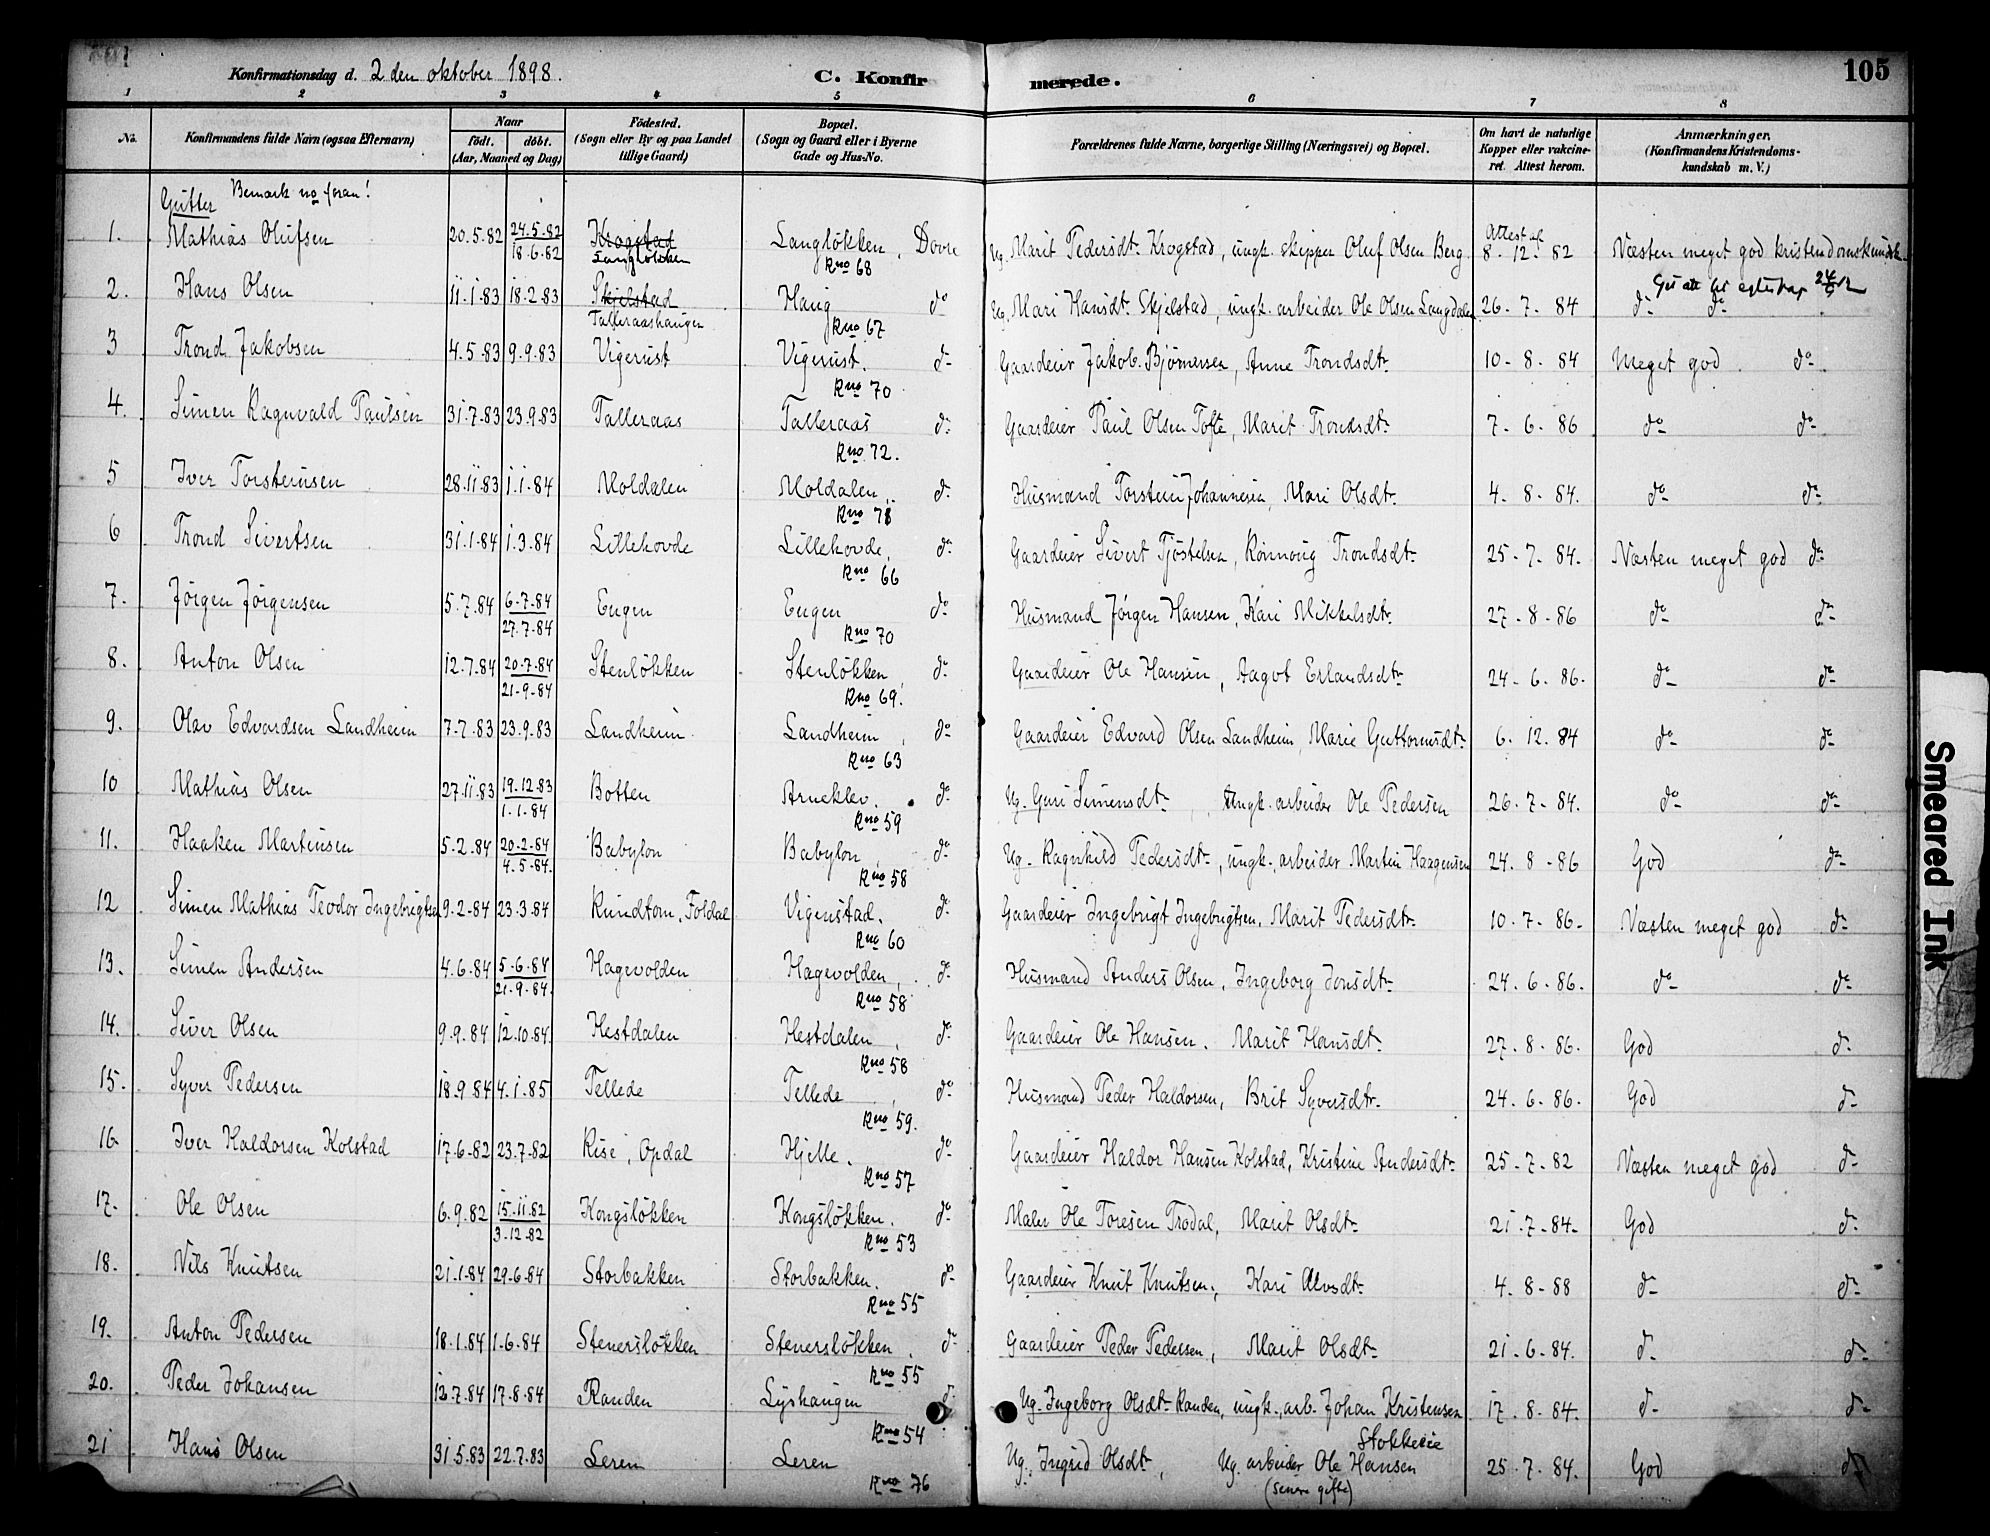 Konfirmationsdag d. 2 den oktober 1898. C. Konfirmerede. 105
1 2 3 4 5 6 7 8
No. Konfirmandens fulde Navn (ogsaa Efternavn) Naar født. døbt. (Aar, Maaned og Dag) Fødested. (Sogn eller By og paa Landet tillige Gaard) Bopæl. (Sogn og Gaard eller i Byerne Gade og Hus-No. Forældrenes fulde Navne, borgerlige Stilling (Næringsvei) og Bopæl. Om havt de naturlige Kopper eller vaccineret. Attest herom. Anmærkninger. (Konfirmandens Kristendomskundskab m. V.)
Gutter Bemærk no foran!
1. Mathias Olufsen 20.5.82 24.5.82 18.6.82 Krogstad Langløkken Langløkken, Dovre Rno 68 Ug. Marit Pedersdt. Krogstad, ungk. skipper Oluf Olsen Berg. Attest af 8-12-82 Næsten meget god kristendomskundsk.
2. Hans Olsen 11.1.83 18.2.83 Skjelstad Talleraashaugen Haug do Rno 67 Ug. Mari Hansdt. Skjelstad, ungk. arbeider Ole Olsen Langdalen 26-7-84 do do
3 Trond Jakobsen 4.5.83 9.9.83 Vigerust Vigerust. do Rno 70 Gaardeier Jakob Bjørnersen, Anne Trondsdt. 10-8-84 Meget god do
4. Simen Ragnvald Paulsen 31.7.83 23.9.83 Talleraas Talleraas do Rno 72. Gaardeier Paul Olsen Tofte, Marit Trondsdt. 7-6-86 do do
5 Iver Torsteinsen 28.11.83 1.1.84 Moldalen Moldalen, do Rno 78 Husmand Torstein Johannesen, Mari Olsdt. 4-8-84. do do
6 Trond Sivertsen 31.1.84 1.3.84 Lillehovde Lillehovde, do Rno 66 Gaardeier Sivert Tjøstelsen, Rønnoug Trondsdt. 25-7-84. Næsten meget god do
7. Jørgen Jørgensen 5.7.84 6.7.84 27.7.84 Eugen Eugen do Rno 70 Husmand Jørgen Hansen, Kari Mikkelsdt. 27-8-86 do do
8. Anton Olsen 12.7.84 20.7.84 21.9.84 Stenløkken Stenløkken, do Rno 69. Gaardeier Ole Hansen, Aagot Erlandsdt. 24-6-86. do do
9. Olav Edvardsen Landheim 7.7.83 23.9.83 Landheim Landheim, do Rno 63 Gaardeier Edvard Olsen Landheim, Marie Guttormsdt. 6.12.84 do do
10 Mathias Olsen 27.11.83 19.12.83 1.1.84 Botten Arneklev. do Rno 59 Ug. Guri Simensdt., Ungk. arbeider Ole Pedersen 26-7-84. do do
11. Haaken Martinsen 5.2.84 20.2.84 4.5.84. Babylon Babylon, do Rno 58 Ug. Ragnhild Pedersdt., ungk. arbeider Martin Haagensen 24.8-86 God do
12 Simen Mathias Teodor Ingebrigtsen 9.2.84 23.3.84 Rundtom, Foldal Vigenstad. do Rno 60 Gaardeier Ingebrigt Ingebrigtsen, Marit Pedersdt. 10.7-86. Næsten meget god do
13. Simen Andersen 4.6.84 5.6.84 21.9.84. Hagevolden Hagevolden, do Rno 58 Husmand Anders Olsen, Ingeborg Jonsdt. 24.6-86. do do
14. Siver Olsen 9.9.84 12.10.84. Hestdalen Hestdalen, do Rno 58 Gaardeier Ole Hansen. Marit Hansdt. 27-8-86. God do
15. Syver Pedersen 18.9.84 4.1.85 Tellede Tellede, do Rno 59. Husmand Peder Haldorsen, Brit Syversdtr. 24.6.86. God do
16. Iver Haldorsen Kolstad 17.6.82 23.7.82 Rise, Opdal Hjelle. do Rno 57 Gaardeier Haldor Hansen Kolstad, Kristine Andersdt. 25-7-82 Næsten meget god do
17. Ole Olsen 6.9.82 15.11.82 3.12.82 Kongsløkken Kongsløkken. do Rno 53 Maler Ole Toresen Trødal, Marit Olsdt. 21.7-84- God do
18. Nils Knutsen 21.1.84 29.6.84 Storbakken Storbakken. do Rno 55 Gaardeier Knut Knutsen, Kari Alvsdt. 4.8-88 do do
19. Anton Pedersen 18.1.84 1.6.84 Stenersløkken Stenersløkken. do Rno 55 Gaardeier Peder Pedersen, Marit Olsdt. 21-6-84. do do
20. Peder Johansen 12.7.84 17.8.84 Randen Lyshaugen do Rno 54 Ug. Ingeborg Olsdt. Randen, ungk. arb. Johan Kristensen 17.8-84. do do
21 Hans Olsen 31.5.83 22.7.83 Leren Leren Rno 76 Ug. Ingrid Olsdt, Ug. arbeider Ole Hansen Stokkeeie (senere gifte) 25.7.84. God do
Smeared Ink